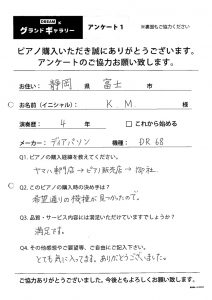 DREAM
グランドギャラリー
アンケート1
※裏面もご協力ください
ピアノ購入いただき誠にありがとうございます。
アンケートのご協力お願い致します。
お住まい 静岡 県 富士 市
お名前(イニシャル): K M 様
演奏歴: 4 年 □これから始める
メーカー: ディアパソン 機種: DR 68
Q1. ピアノ購入経緯を教えてください。
ヤマハ専門店→ピアノ販売店→御社。
Q2. このピアノの購入時の決め手は?
希望通りの機種が見つかったので。
Q3. 品質・サービス内容には満足いただけていますでしょうか?
満足です。
Q4. その他感想やご要望等、ご自由にご記入下さい。
とても気に入ってます。ありがとうございました。
ご協力ありがとうございました。今後ともよろしくお願い致します。